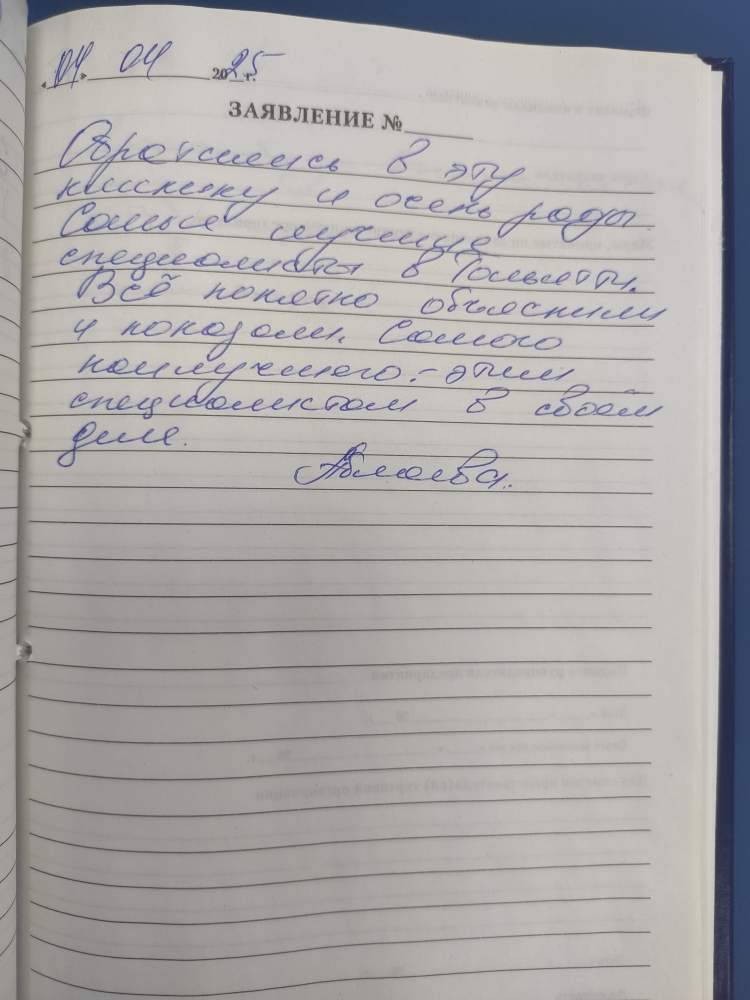 «04» 04 2025 г.
ЗАЯВЛЕНИЕ №
Обратились в эту
клинику и очень рады.
Самые лучшие
специалисты в Тольятти.
Всё понятно объяснили
и показали. Самого
наилучшего - этим
специалистам в своём
деле.